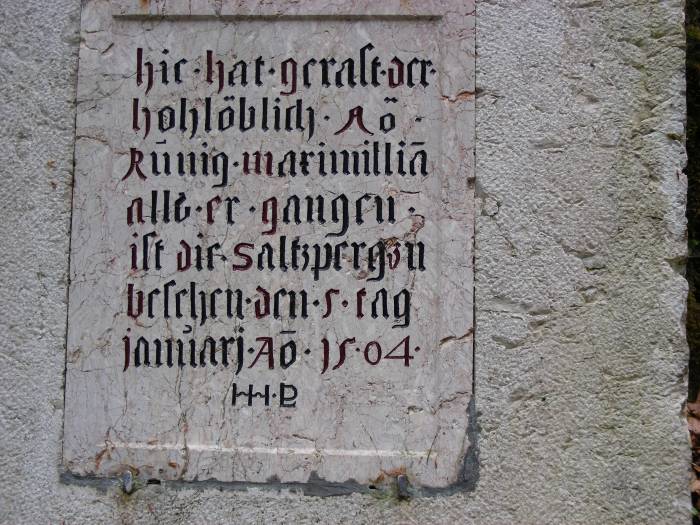 hie · hat · gerast · der
hohlöblich · Aō ·
Kūnig · maximilliā
allß · er · gangen ·
ist die saltzperg zu
beschen · den · 5 · tag
januarj · Aō · 1504 ·
HH · P